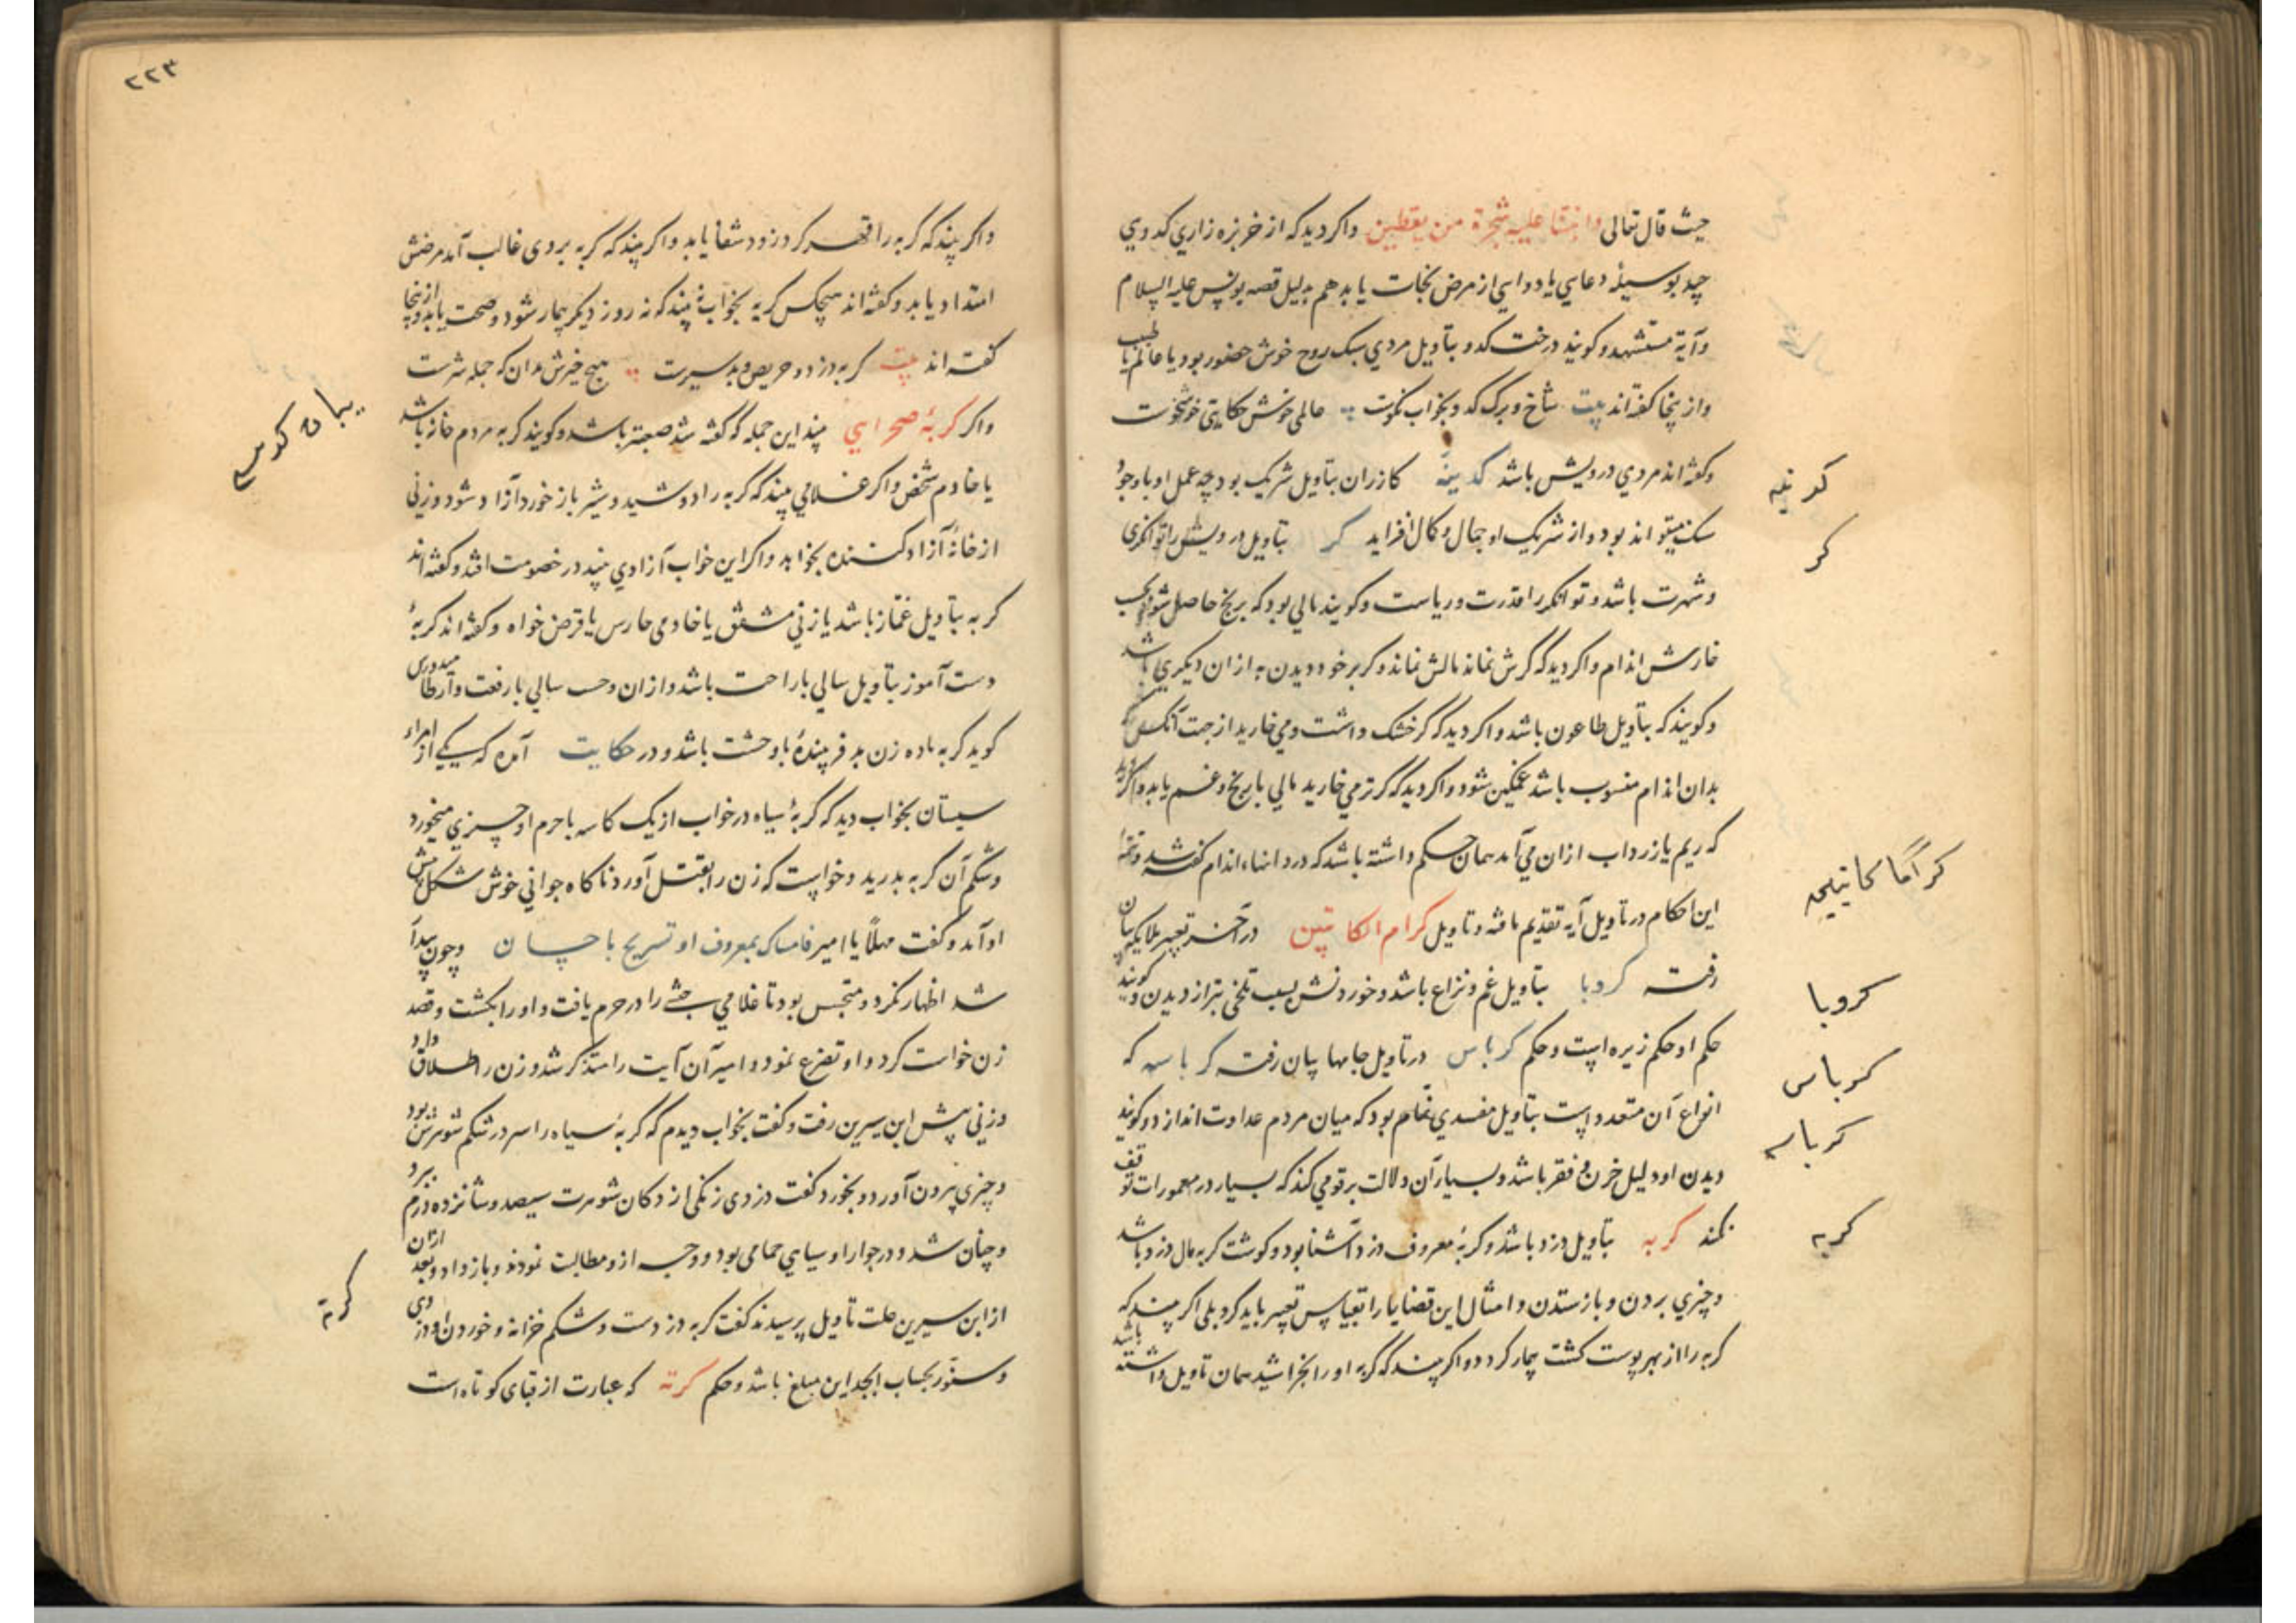 حیث قال تعالی وانبتنا علیه شجرة من یقطین واکر دید که از خربزه زاری کدویی
چید بوسیلهٔ دعایی یا دوایی از مرض نجات یابد هم بدلیل قصه یونس علیه السلام
وآیهٔ مستشهد و کویند درخت کدو بتاویل مردی سبک روح خوش حضور بود یا عالم یا طبیب
واز ینجا کفته‌اند بیت شاخ و برک کدو بخواب نکوست عالمی خوش حکایتی خوشخوست
وکفته‌اند مردی درویش باشد کدینه کازران بتاویل شریک بود چه عمل او باوجود
سنک میتواند بود و از شریک او جمال و کمال افزاید کر بتاویل درویش را توانکری
وشهرت باشد و توانکر را قدرت و ریاست و کویند مالی بود که برنج حاصل شود بحسب
خارش اندام واکر دید که کرش نماند مالش نماند و کر بر خود دیدن به از ان دیکری باشد
وکویند که بتاویل طاعون باشد واکر دید که کر خشک داشت و می خارید از جهت آنکس که
بدان اندام منسوب باشد غمکین شود واکر دید که کر تر می خارید مالی با رنج و غم یابد واکر دید
که ریم یا زرداب ازان می آید همان حکم داشته باشد که در دانهاء اندام کفته شد و تتمهٔ
این احکام در تاویل آیه تقدیم یافته وتاویل کرام الکاتبین در آخر تعبیر ملایکه بیان
رفت کرویا بتاویل غم و نزاع باشد وخوردنش بسبب تلخی بتر از دیدن و کویند
حکم او حکم زیره است وحکم کرباس در تاویل جامها بیان رفت کرباسه که
انواع آن متعدد است بتاویل مفسدی نمام بود که میان مردم عداوت اندازد و کویند
دیدن او دلیل حزن و فقر باشد و بسیار آن دلالت بر قومی کند که بسیار در معمورات توقف
نکند کربه بتاویل دزد باشد و کربهٔ معروف دزد آشنا بود و کوشت کربه مال دزد باشد
وچیزی بردن و باز ستدن و امثال این قضایا را بقیاس تعبیر باید کرد بلی اکر بیند که
کربه را از بهر پوست کشت بیمار کردد واکر بیند که کربه او را بخراشید همان تاویل داشته باشد
کدینه
کر
کراما کاتبین
کرویا
کرباس
کرباسه
کربه
۲۲۳
واکر بیند که کربه را قهر کرد زود شفا یابد واکر بیند که کربه بر وی غالب آمد مرضش
امتداد یابد وکفته‌اند هیچکس کربه بخواب نبیند که نه روز دیکر بیمار شود و صحت یابد و ازینجا
کفته‌اند بیت کربه دزد و حریص و بد سیرت هیچ خیرش مدان که جمله شرست
واکر کربهٔ صحرایی بیند این جمله که کفته شد صعبتر باشد و کویند کربه مردم خانه باشد
یا خادم شخص واکر غلامی بیند که کربه را دوشید و شیر باز خورد آزاد شود و زنی
از خانهٔ آزاد کننده بخواهد واکر این خواب آزادی بیند در خصومت افتد وکفته‌اند
کربه بتاویل غماز باشد یا زنی مشفق یا خادمی حارس یا قرض خواه وکفته‌اند کربهٔ
دست آموز بتاویل سالی با راحت باشد و ازان وحسب سالی با رفعت و ارطامیدورس
کوید کربه ماده زن بد فریبندهٔ با وحشت باشد و در حکایت آمده که یکی از امراء
سیستان بخواب دید که کربهٔ سیاه در خواب از یک کاسه با حرم او چیزی میخورد
وشکم آن کربه بدرید و خواست که زن را بقتل آورد ناکاه جوانی خوش شکل پیش
او آمد وکفت مهلاً یا امیر فامساک بمعروف او تسریح باحسان وچون بیدار
شد اظهار نکرد و متجسس بود تا غلامی حبشی را در حرم یافت و او را بکشت و قصد
زن خواست کرد و او تضرع نمود و امیر آن آیت را متذکر شد و زن را طلاق داد
وزنی پیش ابن سیرین رفت وکفت بخواب دیدم که کربهٔ سیاه را سر در شکم شوهرش بود
وچیزی بیرون آورد و بخورد کفت دزدی زنکی از دکان شوهرت سیصد و شانزده درم ببرد
وچنان شد و در جوار او سیاهی حمامی بود و وجه ازو مطالبت نمودند و باز داد و بعد ازان
از ابن سیرین علت تاویل پرسیدند کفت کربه دزدست و شکم خزانه وخوردن او دزدی
وسنور بحساب ابجد این مبلغ باشد وحکم کرته که عبارت از قبای کوتاه است
بیان
کرته